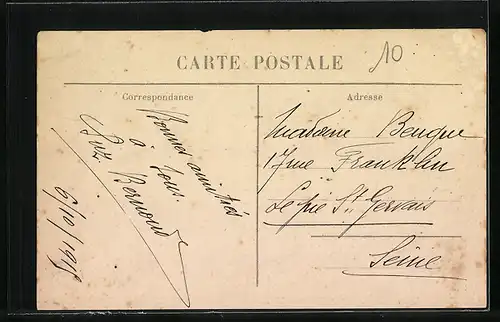 CARTE POSTALE
10
Correspondance
Bonnes amitiés
à tous.
Suz. Bernard
6/10/19
Adresse
Madame Benque
17 rue Franklin
Le pré St. Gervais
Seine